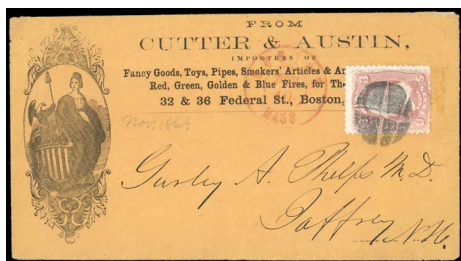 FROM
CUTTER & AUSTIN,
IMPORTERS OF
Fancy Goods, Toys, Pipes, Smokers' Articles &
Red, Green, Golden & Blue Fires, for
32 & 36 Federal St., Boston,
MASS
Nov. 1864
A. Phelps M.D.
Jaffrey
N.H.